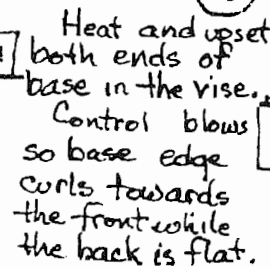 Heat and upset
both ends of
base in the vise.
Control blows
so base edge
curls towards
the front while
the back is flat.